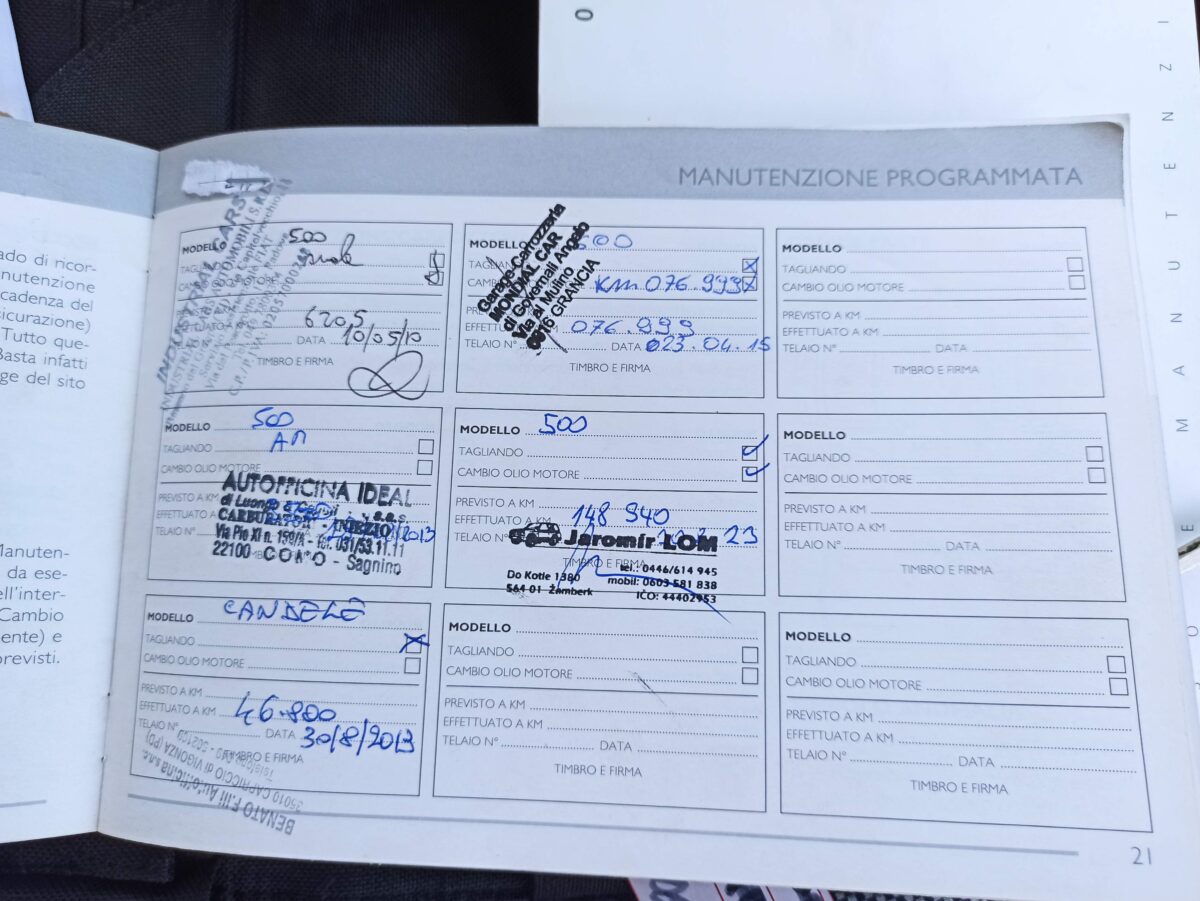 O
MANUTENZI
MANUTENZIONE PROGRAMMATA
ado di ricor-
nutenzione
cadenza del
sicurazione)
Tutto que-
Basta infatti
ge del sito
Manuten-
da ese-
ell'inter-
Cambio
ente) e
previsti.
MODELLO 500
EFFETTUATO A KM 6205
DATA 10/05/10
TIMBRO E FIRMA
MODELLO 500
TAGLIANDO
CAMBIO OLIO MOTORE
AUTOFFICINA IDEAL
di Luongo
s.a.s.
CARBURATORI
Via Pio XI n. 159/A - Tel. 031/53.11.11
22100 - COMO - Sagnino
PREVISTO A KM
EFFETTUATO A
TELAIO N°
MODELLO CANDELE
TAGLIANDO
CAMBIO OLIO MOTORE
PREVISTO A KM
EFFETTUATO A KM 46.800
TELAIO N° DATA 30/8/2013
TIMBRO E FIRMA
BENATO F.lli Autofficina s.n.c.
35010 CAPRICCIO di VIGONZA (PD)
MODELLO 500
KM 076.999
EFFETT 076.999
TELAIO N° DATA 023.04.15
TIMBRO E FIRMA
Garage-Carrozzeria
MONDIAL CAR
di Governali Angelo
Via al Mulino
6916 GRANCIA
MODELLO 500
TAGLIANDO
CAMBIO OLIO MOTORE
PREVISTO A KM
EFFETTUATO A KM 148 940
TELAIO N° 23
TIMBRO E FIRMA
Jaromír LOM
Do Kotle 1380
564 01 Žamberk
tel.: 0446/614 945
mobil: 0603 581 838
IČO: 44402953
MODELLO
TAGLIANDO
CAMBIO OLIO MOTORE
PREVISTO A KM
EFFETTUATO A KM
TELAIO N° DATA
TIMBRO E FIRMA
MODELLO
TAGLIANDO
CAMBIO OLIO MOTORE
PREVISTO A KM
EFFETTUATO A KM
TELAIO N° DATA
TIMBRO E FIRMA
MODELLO
TAGLIANDO
CAMBIO OLIO MOTORE
PREVISTO A KM
EFFETTUATO A KM
TELAIO N° DATA
TIMBRO E FIRMA
MODELLO
TAGLIANDO
CAMBIO OLIO MOTORE
PREVISTO A KM
EFFETTUATO A KM
TELAIO N° DATA
TIMBRO E FIRMA
21